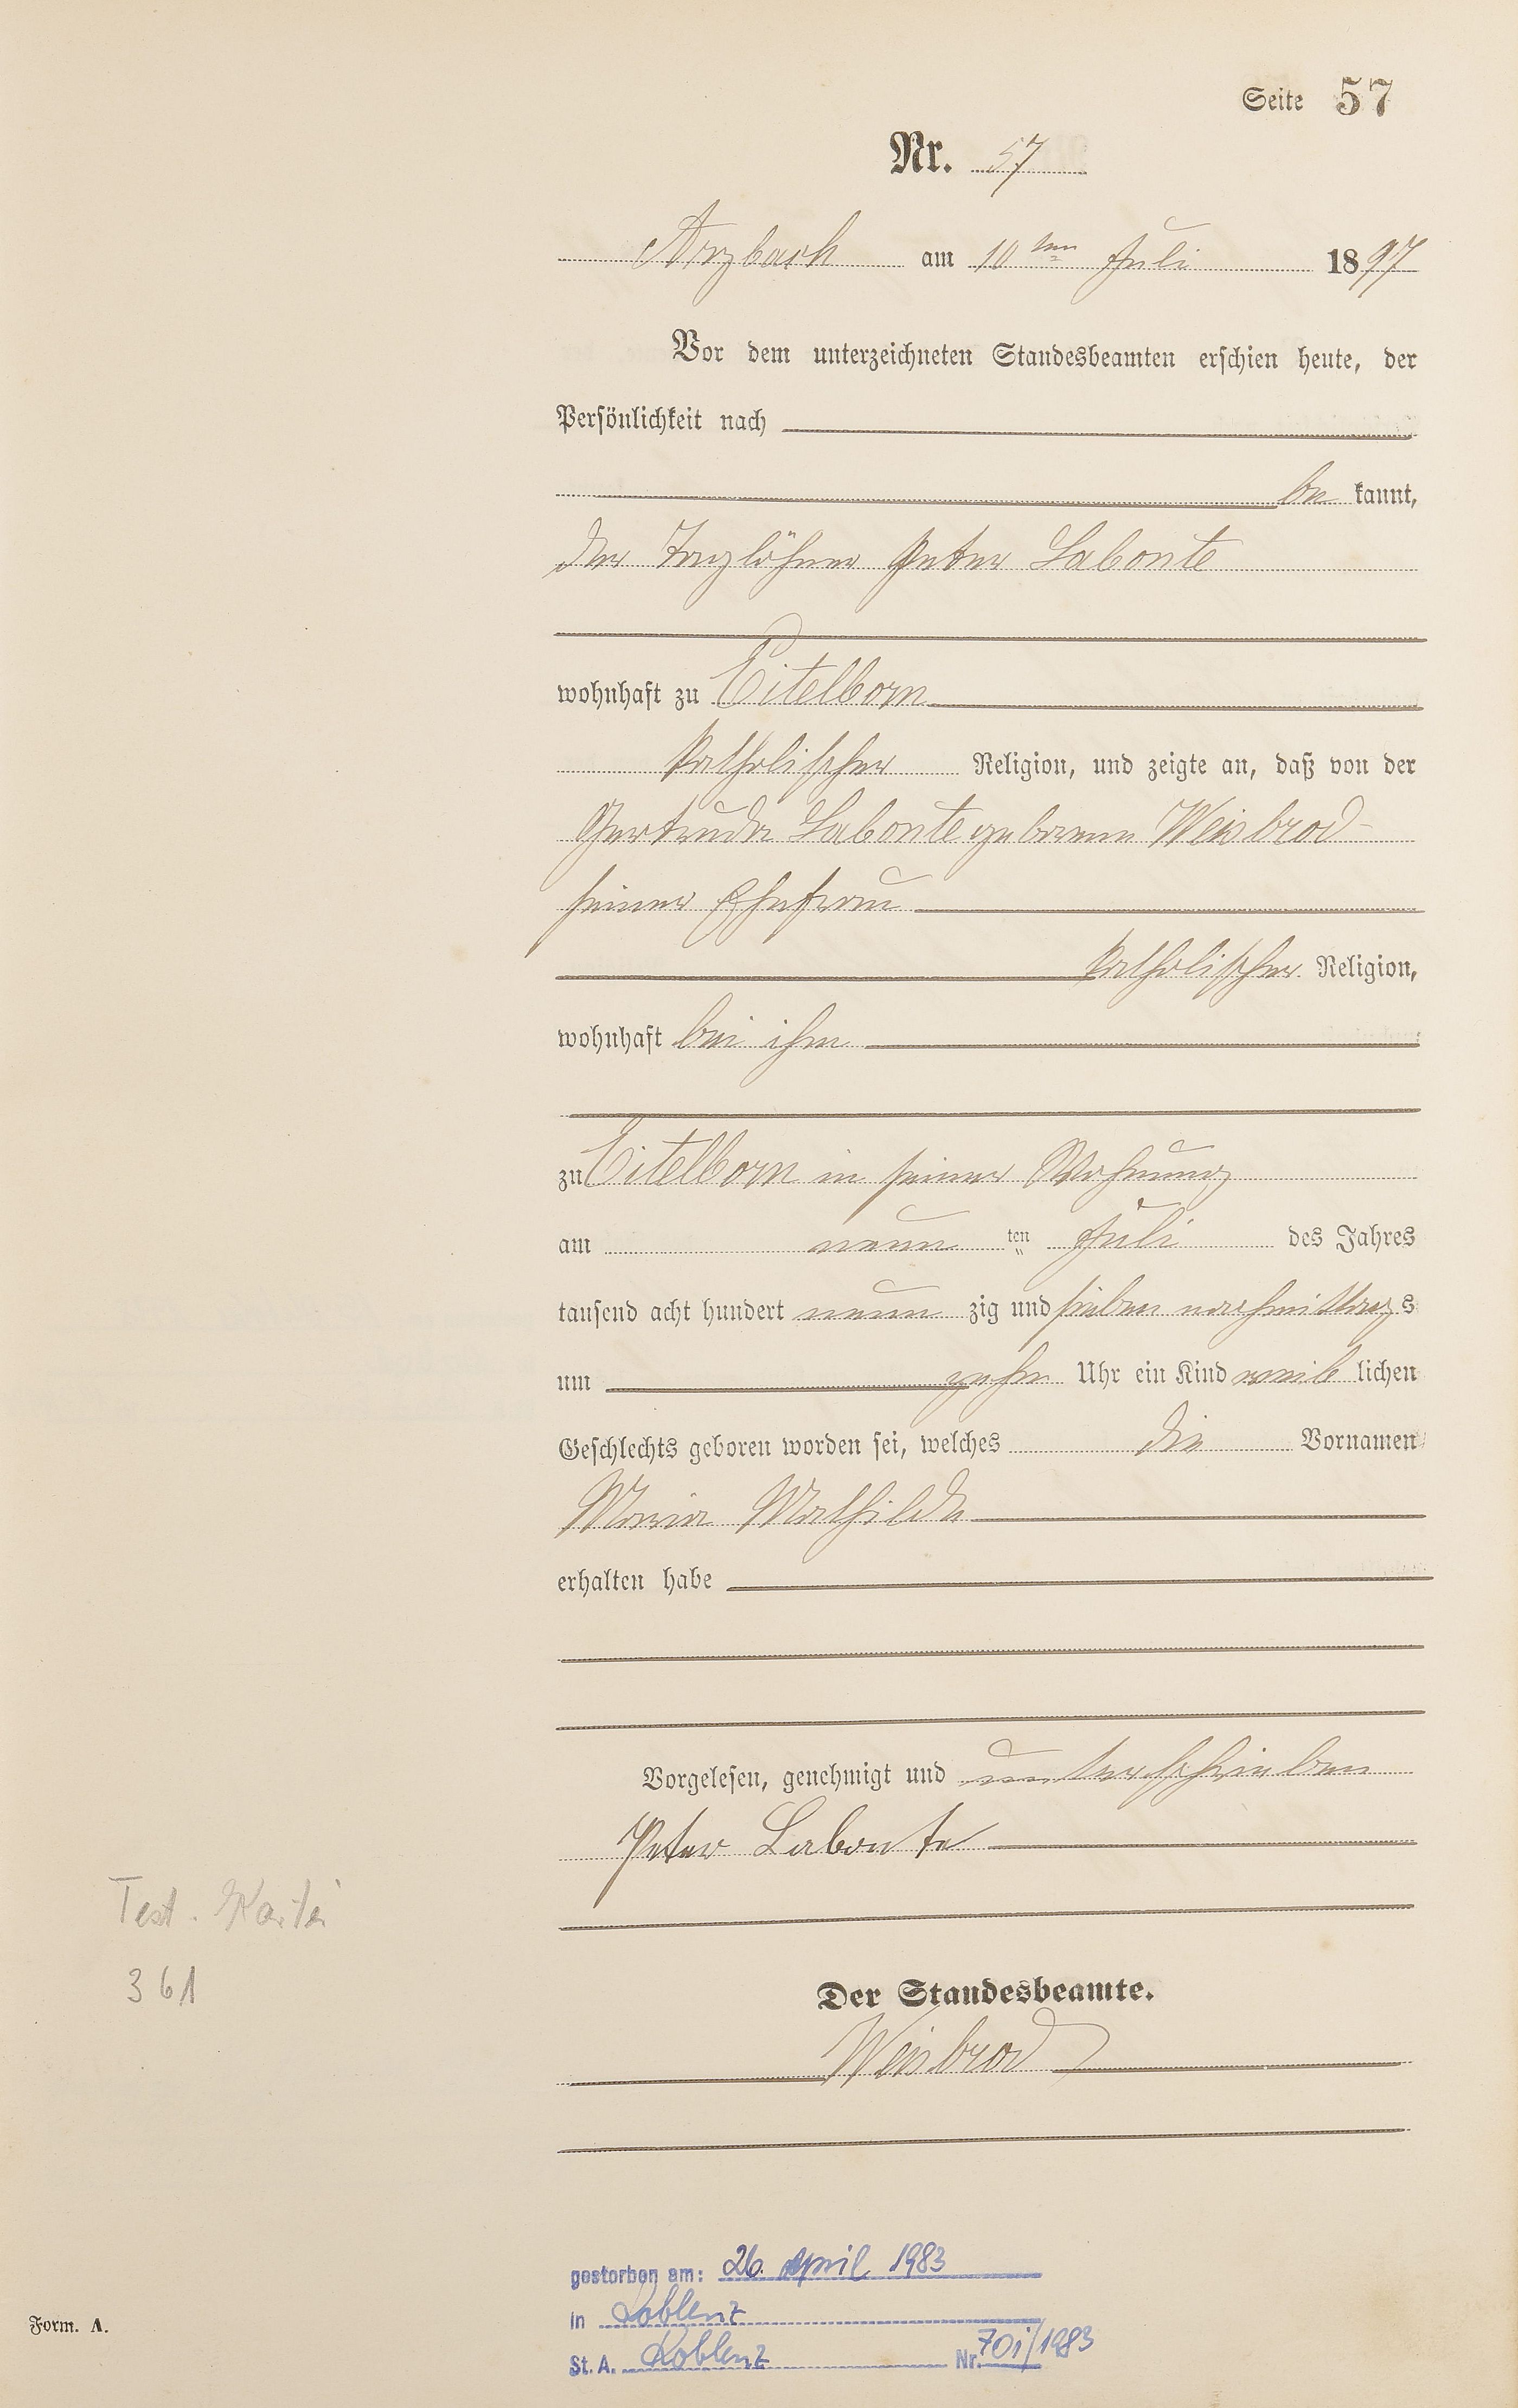 Seite 57
Nr. 57
Arzbach am 10ten Juli 1897
Vor dem unterzeichneten Standesbeamten erschien heute, der
Persönlichkeit nach
be kannt,
der Taglöhner Peter Labonte
wohnhaft zu Eitelborn
katholischer Religion, und zeigte an, daß von der
Gertrude Labonte geborene Weisbrod
seiner Ehefrau
katholischer Religion,
wohnhaft bei ihm
zu Eitelborn in seiner Wohnung
am neun ten Juli des Jahres
tausend acht hundert neun zig und sieben nachmittags
um zehn Uhr ein Kind weib lichen
Geschlechts geboren worden sei, welches die Vornamen
Maria Mathilde
erhalten habe
Vorgelesen, genehmigt und unterschrieben
Peter Labonte
Test. Kartei
361
Der Standesbeamte.
Weisbrod
gestorben am: 26. April 1983
in Koblenz
St. A. Koblenz Nr. 701/1983
Form. A.